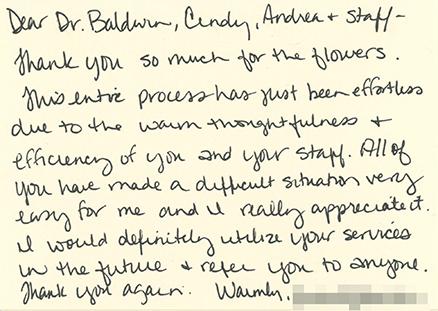 Dear Dr. Baldwin, Cindy, Andrea + Staff-
Thank you so much for the flowers.
This entire process has just been effortless
due to the warm thoughtfulness +
efficiency of you and your staff. All of
you have made a difficult situation very
easy for me and I really appreciate it.
I would definitely utilize your services
in the future + refer you to anyone.
Thank you again. Warmly,